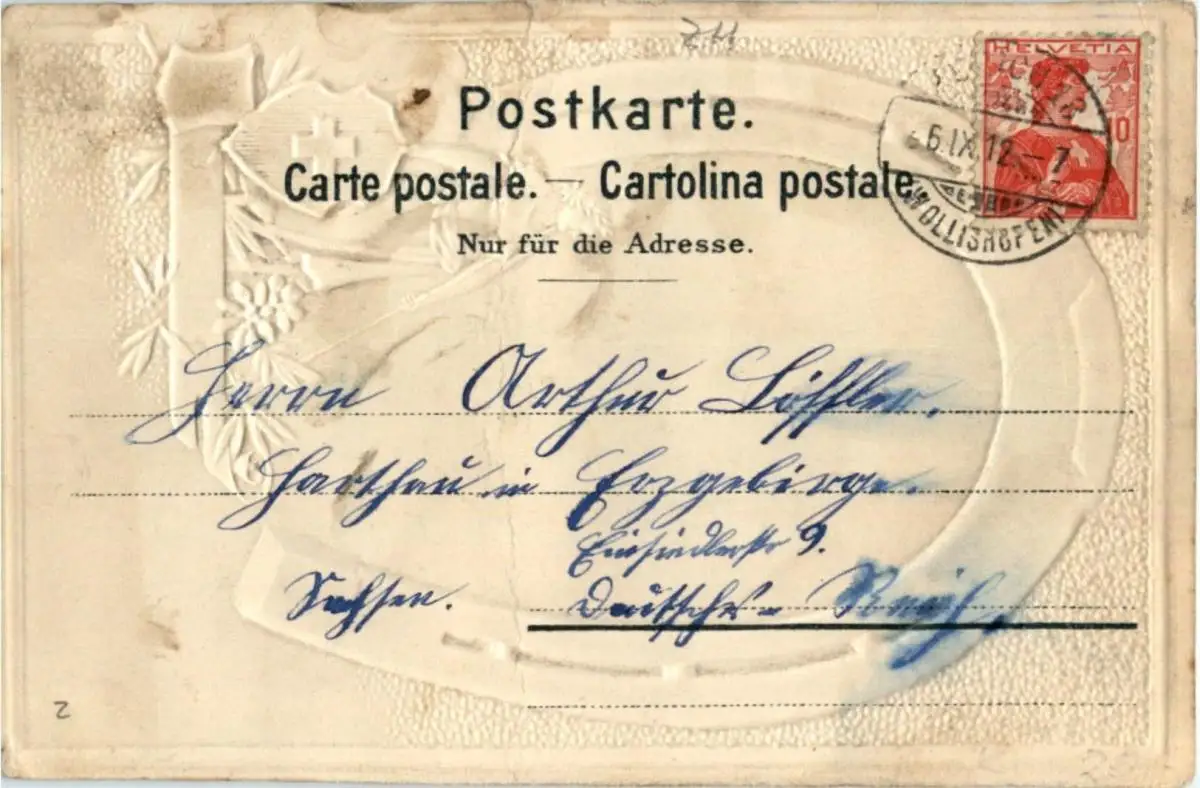 ZH
Postkarte.
Carte postale. — Cartolina postale.
Nur für die Adresse.
HELVETIA
10
6.IX.12.-7
(WOLLISHOFEN)
Herrn Arthur Löffler.
Harthau in Erzgebirge.
Einsiedlerstr 9.
Sachsen. Deutsches-Reich.
2